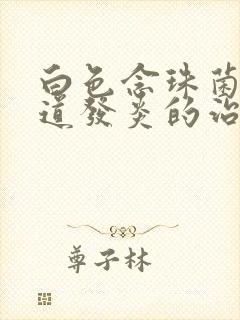 白色念珠菌
道發炎的治
尊子林